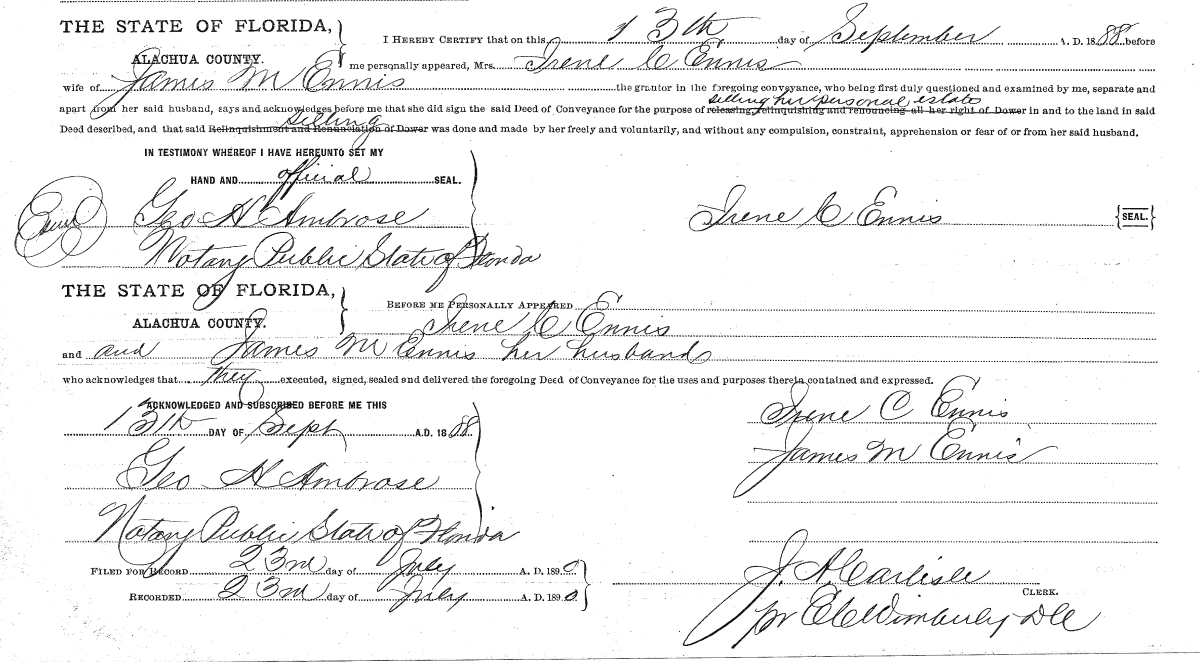 THE STATE OF FLORIDA,
ALACHUA COUNTY.
I HEREBY CERTIFY that on this 13th day of September A. D. 1888 before
me personally appeared, Mrs. Irene C Ennis
wife of James M Ennis the grantor in the foregoing conveyance, who being first duly questioned and examined by me, separate and
selling her personal estate
apart from her said husband, says and acknowledges before me that she did sign the said Deed of Conveyance for the purpose of releasing, relinquishing and renouncing all her right of Dower in and to the land in said
selling
Deed described, and that said Relinquishment and Renunciation of Dower was done and made by her freely and voluntarily, and without any compulsion, constraint, apprehension or fear of or from her said husband.
IN TESTIMONY WHEREOF I HAVE HEREUNTO SET MY
HAND AND official SEAL.
Geo H Ambrose
Irene C Ennis {SEAL.}
Notary Public State of Florida
THE STATE OF FLORIDA,
ALACHUA COUNTY.
BEFORE ME PERSONALLY APPEARED
Irene C Ennis
and and James M Ennis her husband
who acknowledges that they executed, signed, sealed and delivered the foregoing Deed of Conveyance for the uses and purposes therein contained and expressed.
ACKNOWLEDGED AND SUBSCRIBED BEFORE ME THIS
13th DAY OF Sept A.D. 1888
Irene C Ennis
James M Ennis
Geo H Ambrose
Notary Public State of Florida
FILED FOR RECORD 23rd day of July A. D. 1890
RECORDED 23rd day of July A. D. 1890
J. A. Carlisle
CLERK.
pr E C Wimberly D C